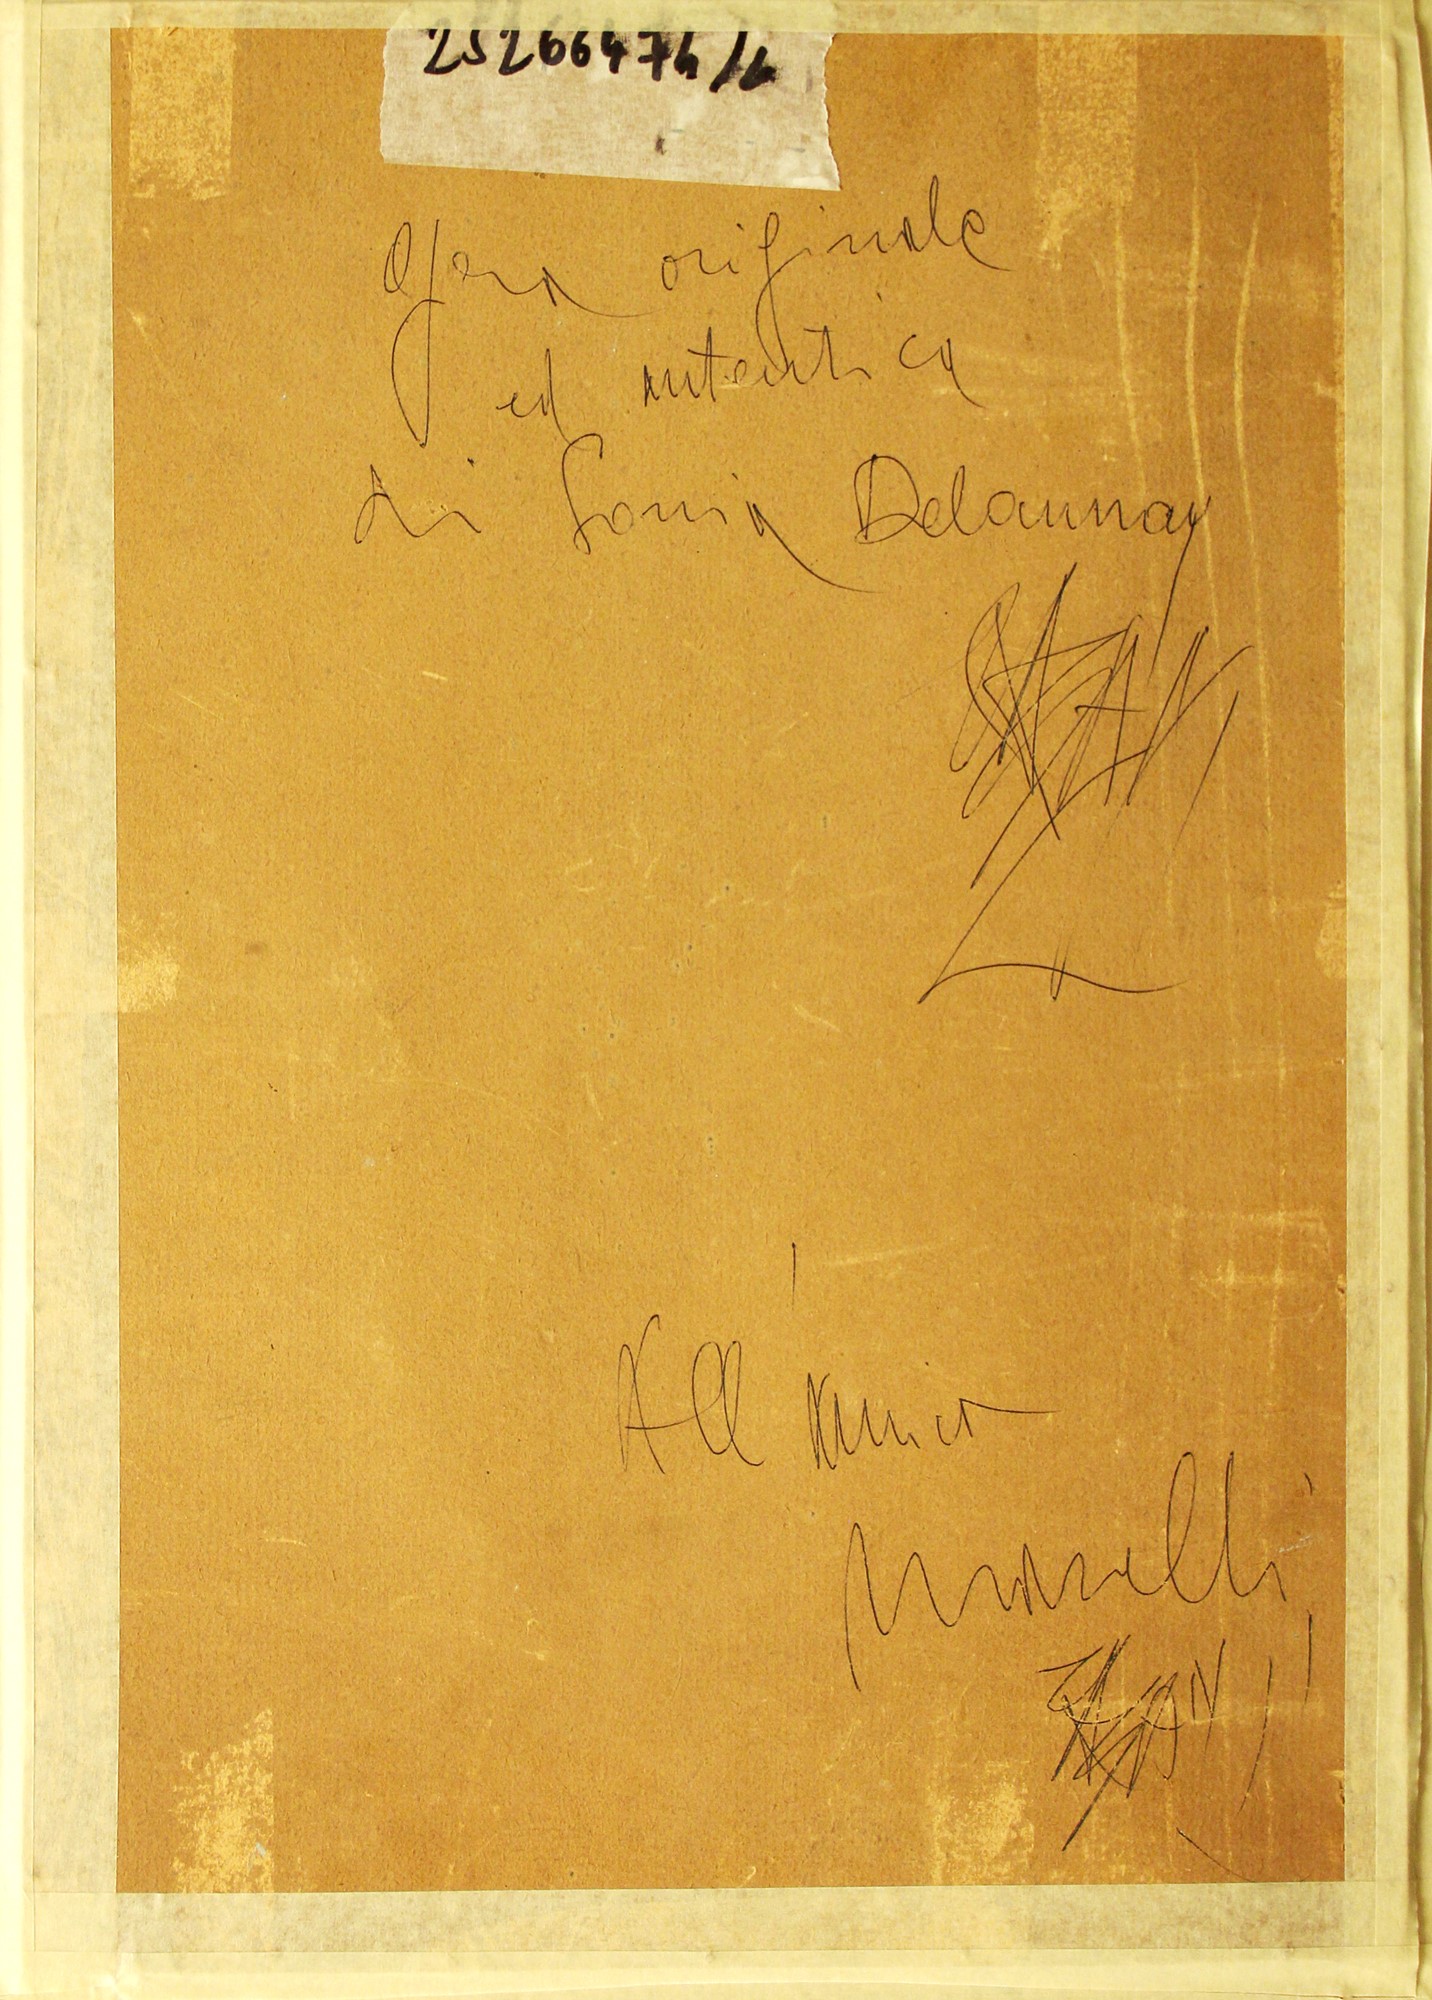 25266474/6
Opera originale
ed autentica
di Sonia Delaunay
All'amico